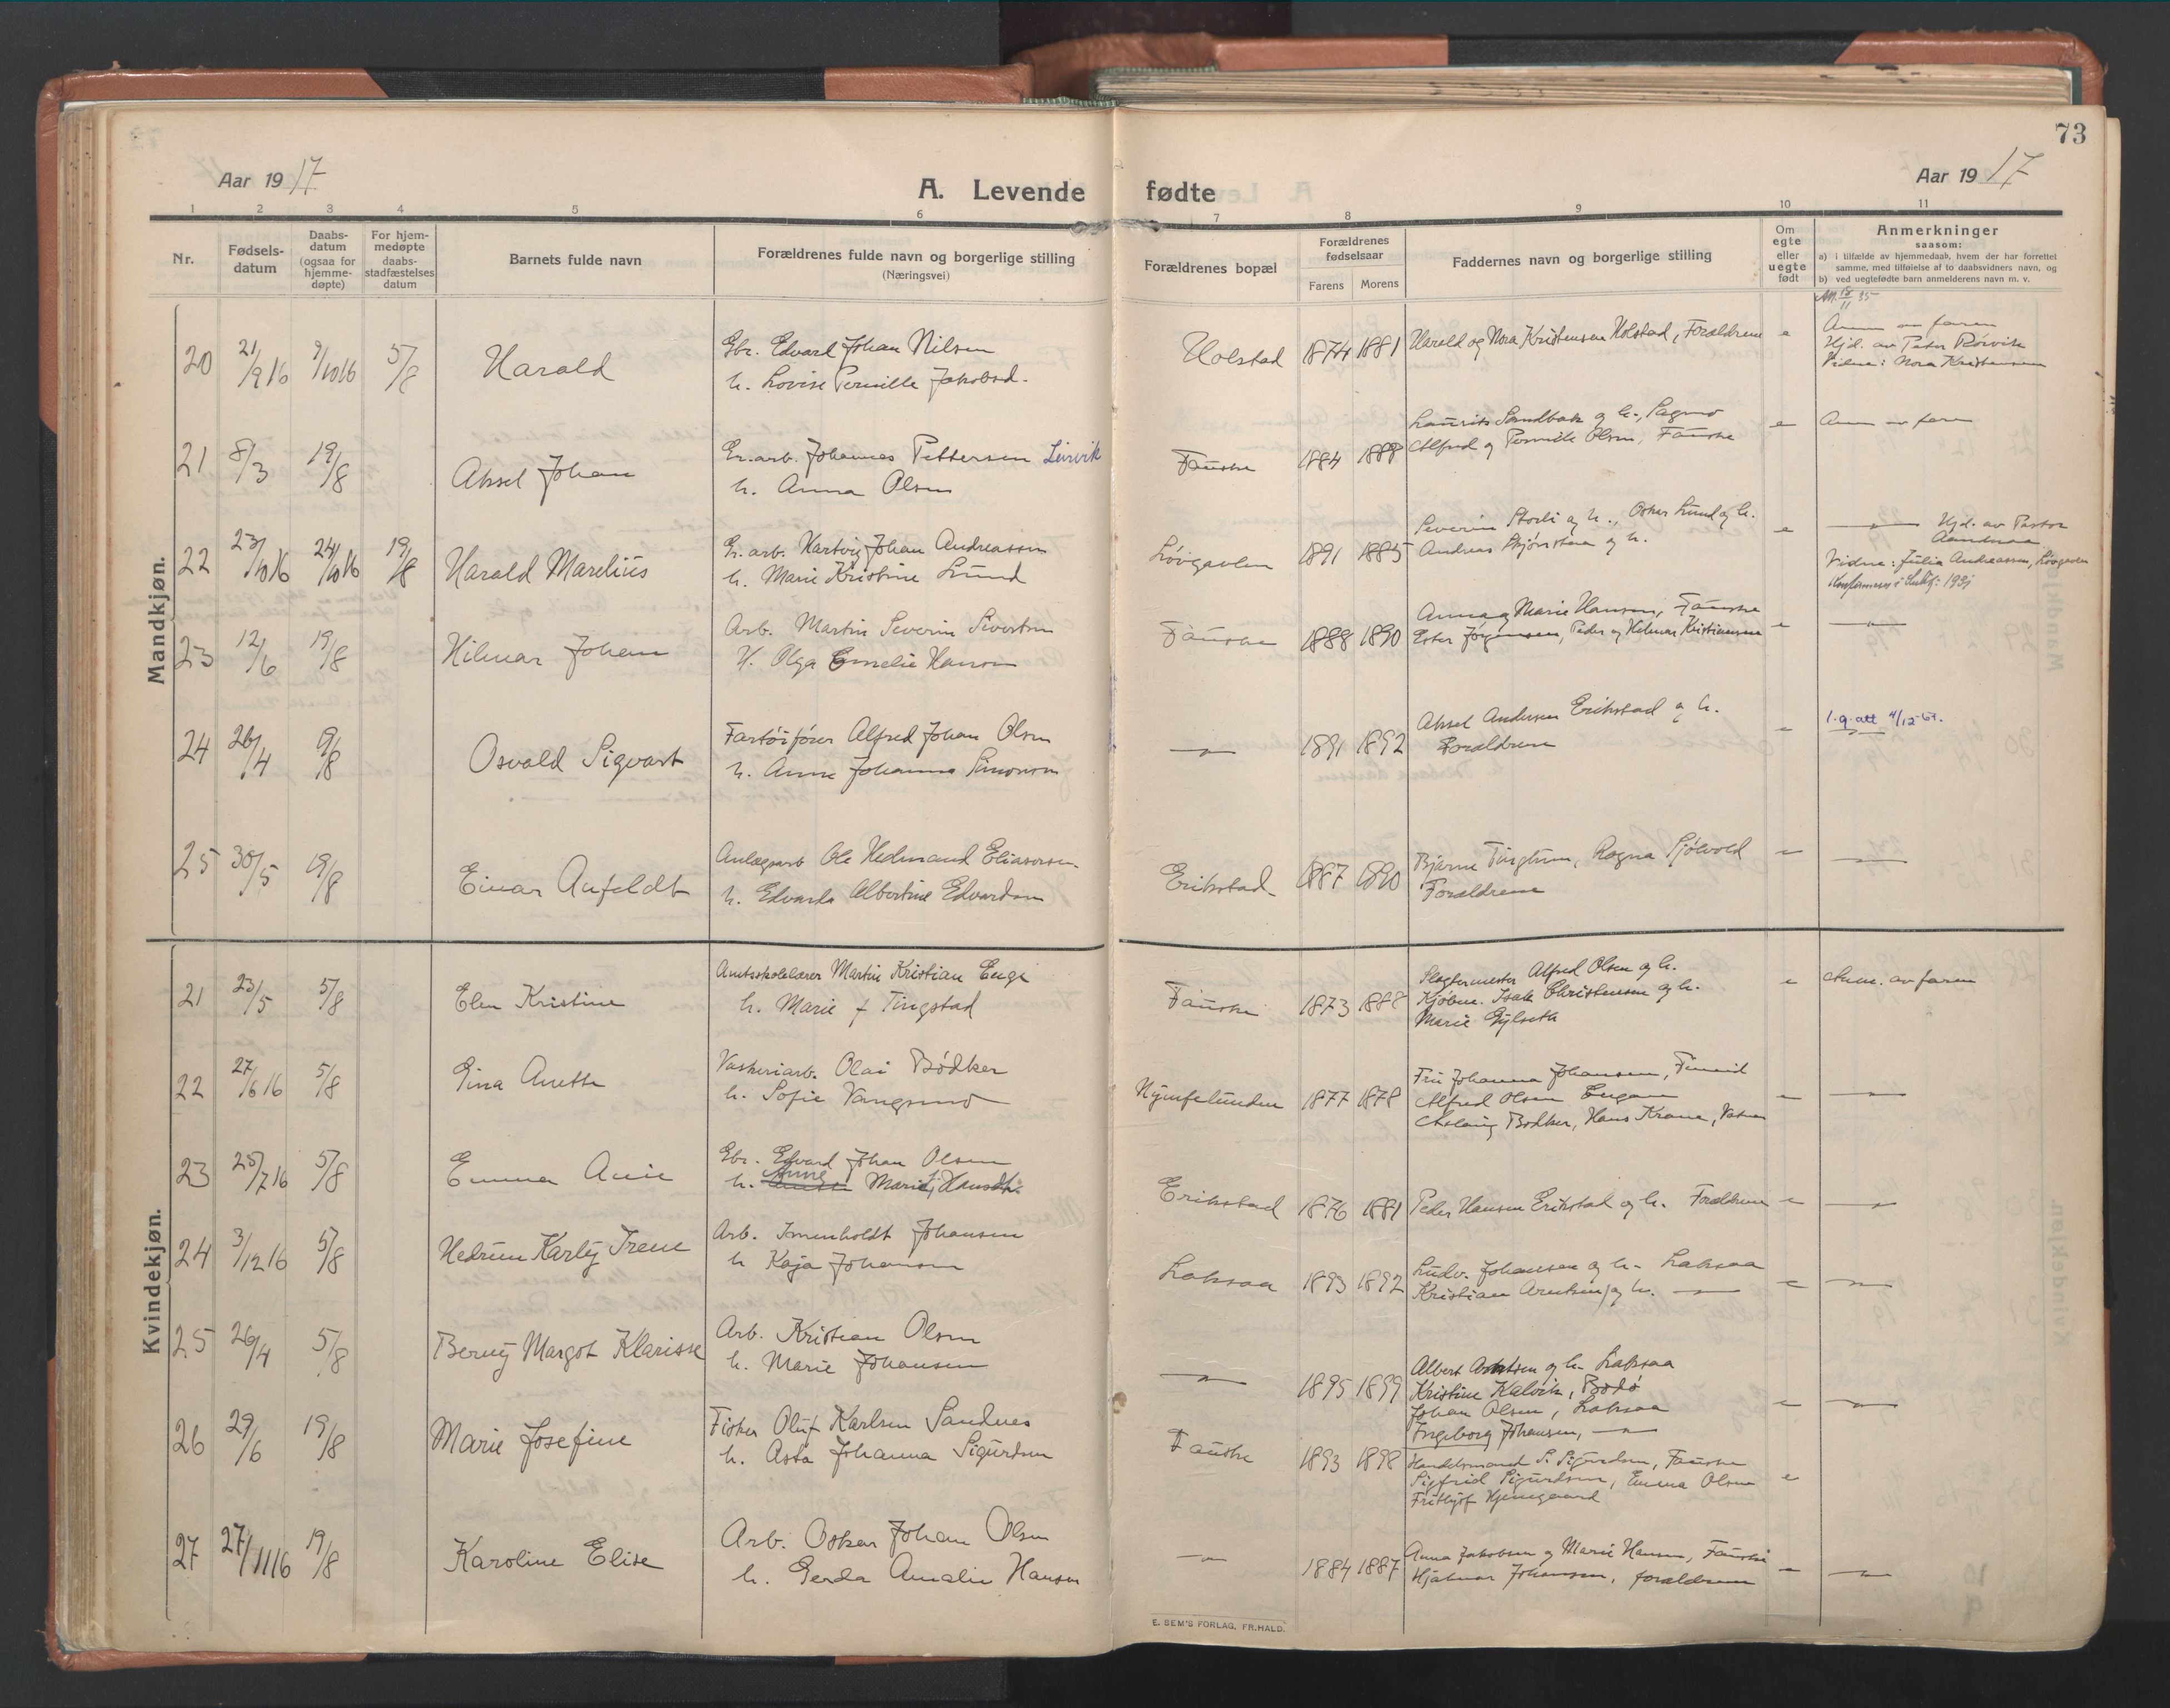 73
Aar 1917
A. Levende fødte
Aar 1917
1 2 3 4 5 6 7 8 9 10 11
Nr.
Fødsels-
datum
Daabs-
datum
(ogsaa for
hjemme-
døpte)
For hjem-
medøpte
daabs-
stadfæstelses
datum
Barnets fulde navn
Forældrenes fulde navn og borgerlige stilling
(Næringsvei)
Forældrenes bopæl
Forældrenes
fødselsaar
Farens Morens
Faddernes navn og borgerlige stilling
Om
egte
eller
uegte
født
Anmerkninger
saasom:
a) i tilfælde av hjemmedaab, hvem der har forrettet
samme, med tilføielse af to daabsvidners navn, og
b) ved uegtefødte barn anmelderens navn m. v.
Mandkjøn.
20 21/9 16 9/10 16 5/8 Harald
Gbr. Edvard Johan Nilsen
h. Lovise Pernille Jakobsd.
Holstad 1874 1881 Harald og Nora Kristensen Holstad, Forældrene e
18/11 35
Anm av faren
Hjd. av Peter Rørvik
Vidne: Nora Kristensen
21 8/3 19/8 Aksel Johan
Gr.arb. Johannes Pettersen Leivik
h. Anna Olsen
Fauske 1884 1888
Laurits Sandbak og h., Sagmo
Alfred og Pernille Olsen, Fauske
e Anm av faren
22 23/10 16 24/10 16 19/8 Harald Marelius
Gr.arb. Hartvig Johan Andreassen
h. Marie Kristine Lund
Løvgavlen 1891 1885
Severin Storli og h., Oskar Lund og h.
Andreas Skjønstaa og h.
e — Hjd. av Pastor
Vidne: Julia Andreassen, Løvgavlen
1931
23 12/6 19/8 Hilmar Johan
Arb. Martin Severin Sivertsen
H. Olga Emelie Hansen
Fauske 1888 1890
Anna og Marie Hansen, Fauske
Ester Jørgensen, Peder og Helmer Kristiansen
e —
24 26/4 19/8 Osvald Sigvart
Fartøifører Alfred Johan Olsen
h. Anna Johanna Simonsen
— 1891 1892
Aksel Andersen Erikstad og h.
Forældrene
e l.g. att 4/12-67.
25 30/5 19/8 Einar Aufeldt
Anlægsarb Ole Hedmand Eliassen
h. Edvarda Albertine Edvardsen
Erikstad 1887 1890
Bjarne Tingstrøm, Ragna Sjøvold
Forældrene
e —
Kvindekjøn.
21 23/5 5/8 Elen Kristine
Amtsskolelærer Martin Kristian Enge
h. Marie f Tingstad
Fauske 1873 1888
Slagtermester Alfred Olsen og h.
Kjøbm. Isak Christensen og h.
Marie Gylseth
e Anm. av faren
22 27/6 16 5/8 Gina Anette
Vaskeriarb. Olai Bødker
h. Sofie Vangsmo
Nymfelunden 1877 1878
Fru Johanna Johansen, Finneid
Alfred Olsen Engan
Aslaug Bødker, Hans Krane, Vatnan
e —
23 25/7 16 5/8 Emma Anie
Gbr. Edvard Johan Olsen
h. Anne Marie Hansdt.
Erikstad 1876 1881 Peder Hansen Erikstad og h. Forældrene e —
24 3/12 16 5/8 Hedrun Karly Irene
Arb. Imenholdt Johansen
h Kaja Johansen
Laksaa 1893 1892
Ludv. Johansen og h. Laksaa
Kristian Arntsen og h. —
e —
25 26/4 5/8 Berny Margot Klarisse
Arb. Kristian Olsen
h. Marie Johansen
— 1895 1899
Albert Arntsen og h. Laksaa
Kristine Kalvik, Bodø
Johan Olsen, Laksaa
Ingeborg Johansen, —
e —
26 29/6 19/8 Marie Josefine
Fisker Oluf Karlsen Sandnes
h. Asta Johanna Sigurdsen
Fauske 1893 1898
Handelsmand S. Sigurdsen, Fauske
Sigfrid Sigurdsen, Emma Olsen
Frithjof Hjemgaard
e
27 27/11 16 19/8 Karoline Elise
Arb. Oskar Johan Olsen
h. Gerda Amalie Hansen
— 1884 1887
Anna Jakobsen og Marie Hansen, Fauske
Hjalmar Johansen, forældrene
e —
E. SEM'S FORLAG, FR.HALD.